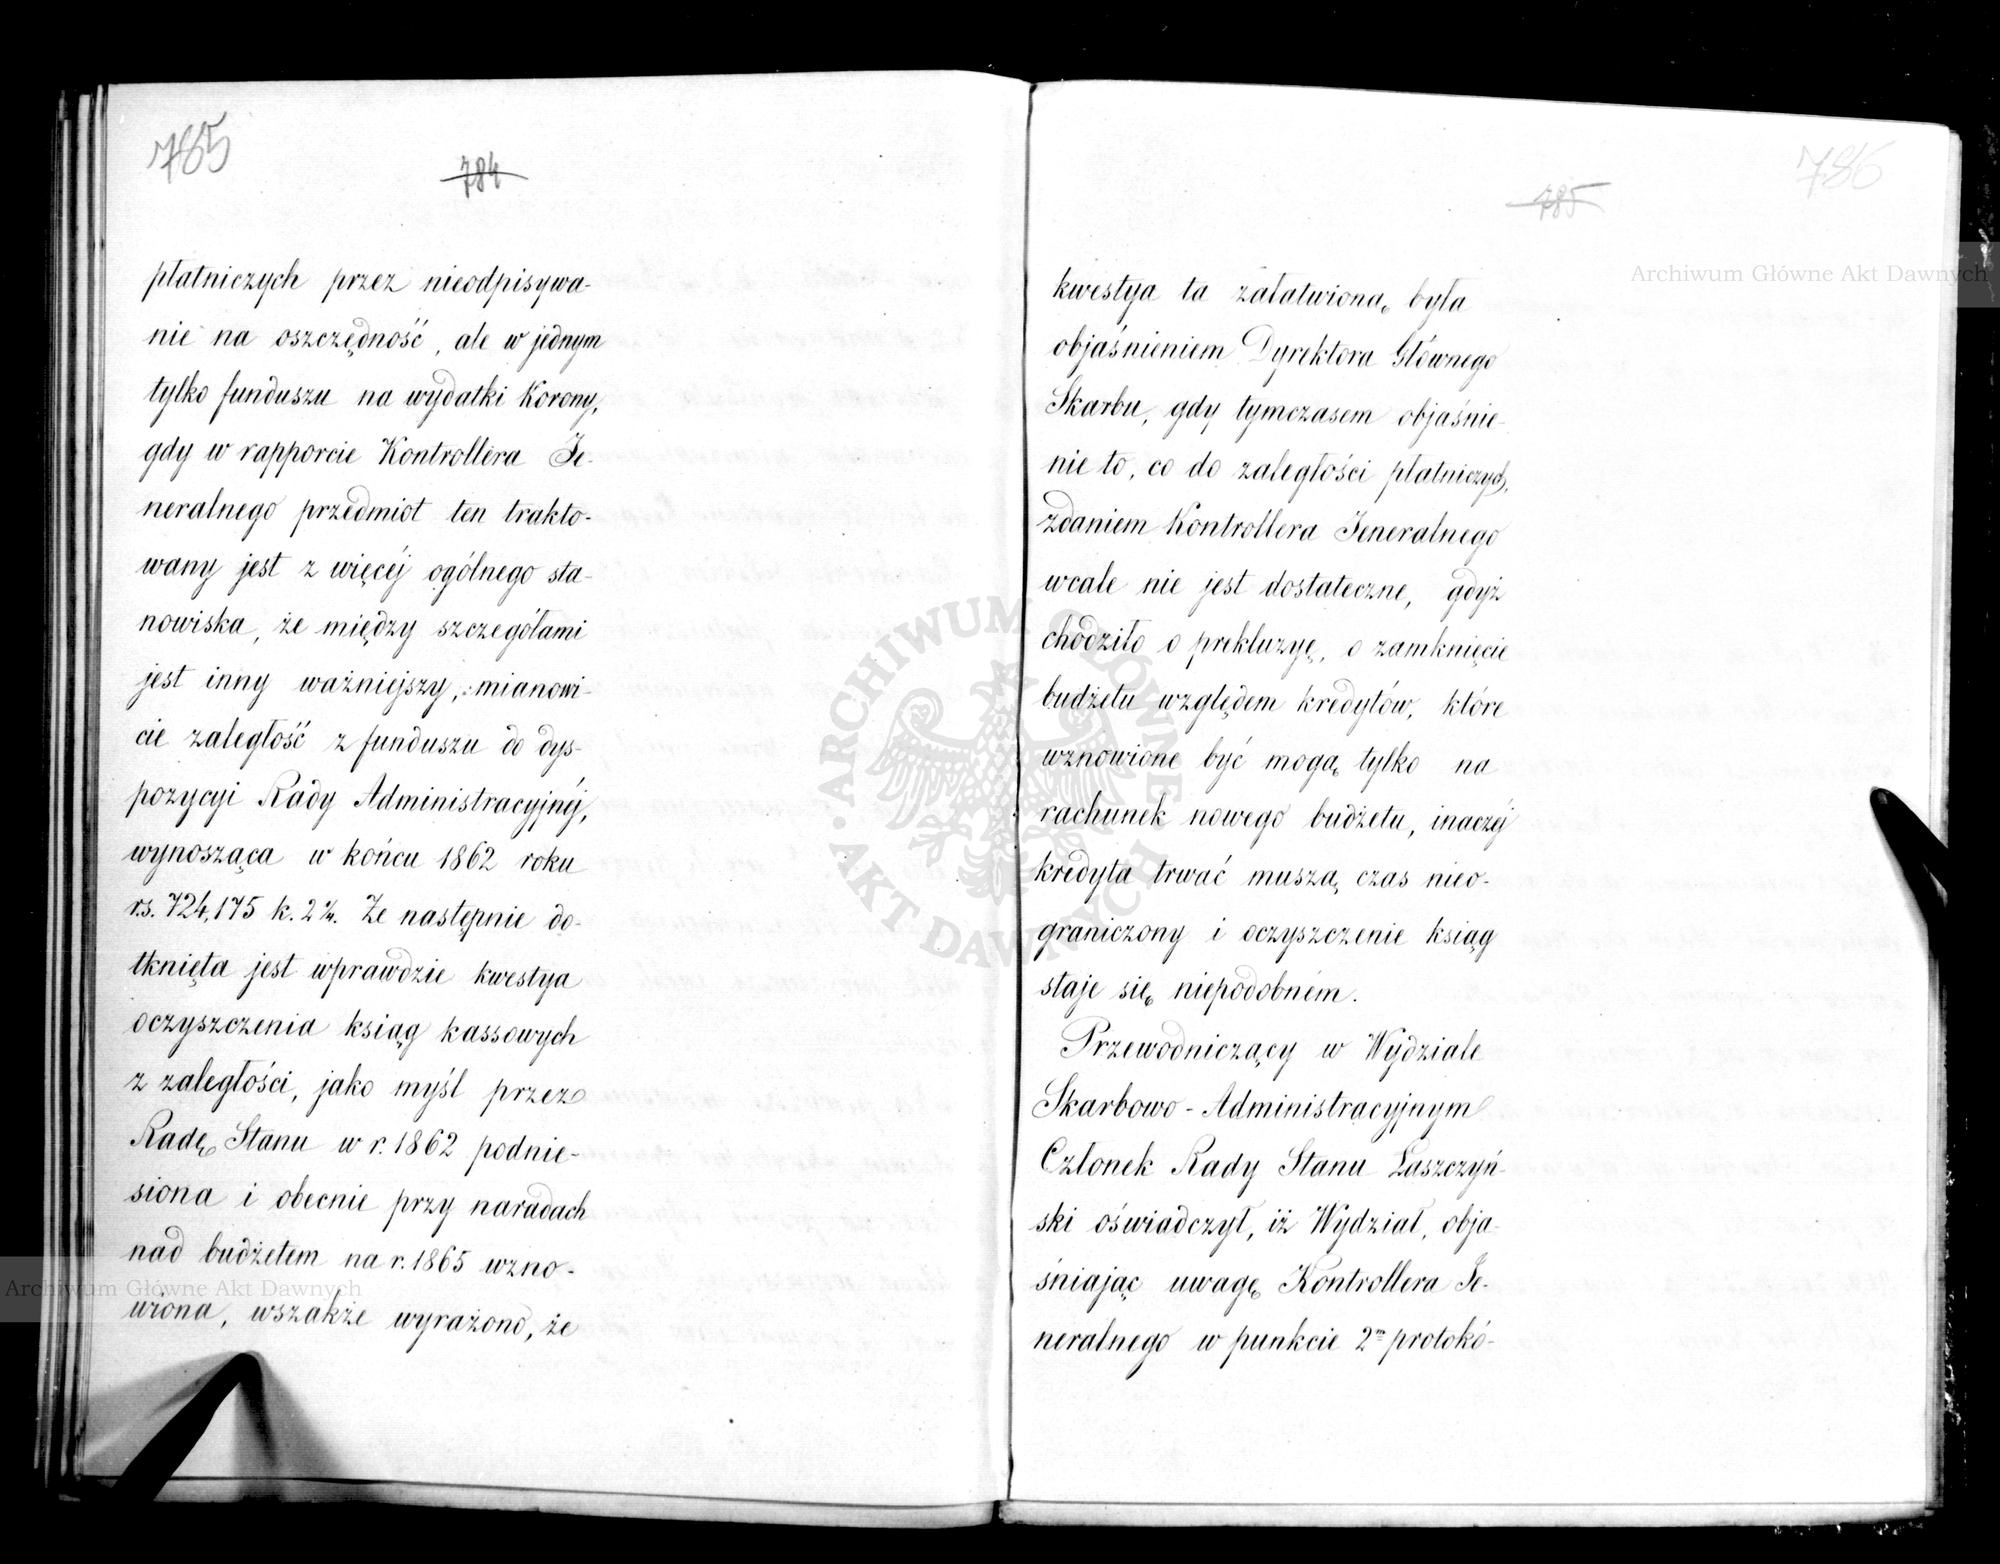 785
784
płatniczych przez nieodpisywa-
nie na oszczędność, ale w jednym
tylko funduszu na wydatki Korony,
gdy w rapporcie Kontrollera Je-
neralnego przedmiot ten trakto-
wany jest z więcéj ogólnego sta-
nowiska, że między szczegółami
jest inny ważniejszy, mianowi-
cie zaległość z funduszu do dys-
pozycyi Rady Administracyjnéj,
wynosząca w końcu 1862 roku
rs. 724,175 k. 2½. Że następnie do-
tknięta jest wprawdzie kwestya
oczyszczenia ksiąg kassowych
z zaległości, jako myśl przez
Radę Stanu w r. 1862 podnie-
siona i obecnie przy naradach
nad budżetem na r. 1865 wzno-
wiona, wszakże wyrażono, że
786
785
kwestya ta załatwioną była
objaśnieniem Dyrektora Głównego
Skarbu, gdy tymczasem objaśnie-
nie to, co do zaległości płatniczych,
zdaniem Kontrollera Jeneralnego
wcale nie jest dostateczne, gdyż
chodziło o prekluzyę, o zamknięcie
budżetu względem kredytów, które
wznowione być mogą tylko na
rachunek nowego budżetu, inaczéj
kredyta trwać muszą czas nieo-
graniczony i oczyszczenie ksiąg
staje się niepodobném.
Przewodniczący w Wydziale
Skarbowo-Administracyjnym
Członek Rady Stanu Łaszczyń-
ski oświadczył, iż Wydział, obja-
śniając uwagę Kontrollera Je-
neralnego w punkcie 2m protokó-
Archiwum Główne Akt Dawnych
Archiwum Główne Akt Dawnych
ARCHIWUM GŁÓWNE AKT DAWNYCH